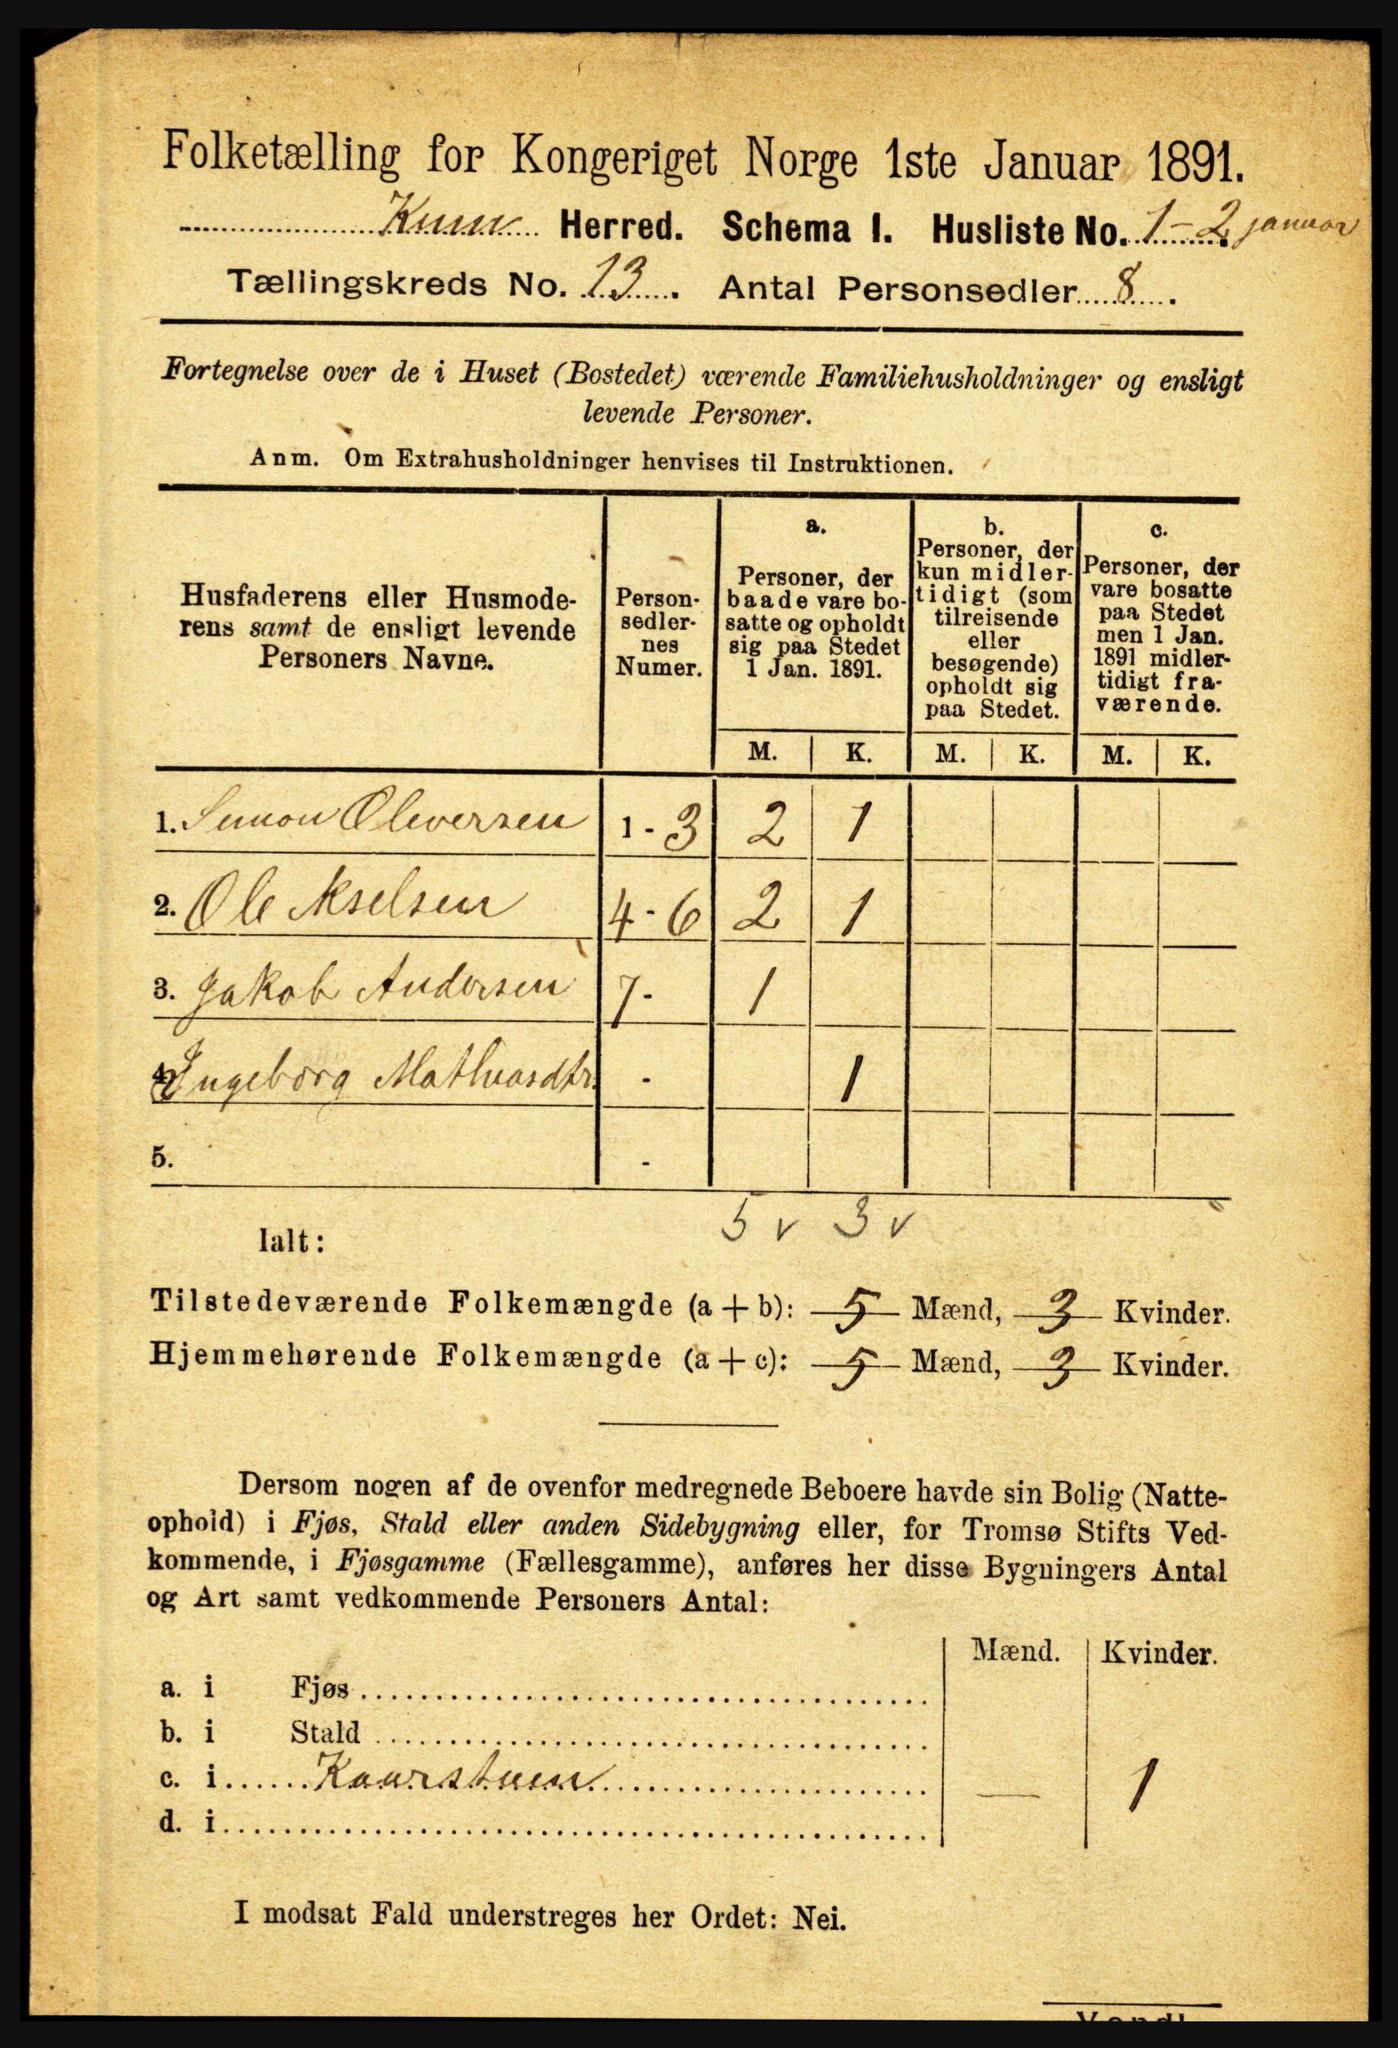 Folketælling for Kongeriget Norge 1ste Januar 1891.
Kinn Herred. Schema I. Husliste No. 1-2 januar
Tællingskreds No. 13. Antal Personsedler 8.
Fortegnelse over de i Huset (Bostedet) værende Familiehusholdninger og ensligt
levende Personer.
Anm. Om Extrahusholdninger henvises til Instruktionen.
Husfaderens eller Husmode-
rens samt de ensligt levende
Personers Navne.
Person-
sedler-
nes
Numer.
a.
Personer, der
baade vare bo-
satte og opholdt
sig paa Stedet
1 Jan. 1891.
b.
Personer, der
kun midler-
tidigt (som
tilreisende
eller
besøgende)
opholdt sig
paa Stedet.
c.
Personer, der
vare bosatte
paa Stedet
men 1 Jan.
1891 midler-
tidigt fra-
værende.
M. K. M. K. M. K.
1. Simon Oliversen 1 - 3 2 1
2. Ole Akselsen 4 - 6 2 1
3. Jakob Andersen 7 - 1
4. Ingeborg - 1
5. -
5 v 3 v
Ialt:
Tilstedeværende Folkemængde (a + b): 5 Mænd, 3 Kvinder.
Hjemmehørende Folkemængde (a + c): 5 Mænd, 3 Kvinder.
Dersom nogen af de ovenfor medregnede Beboere havde sin Bolig (Natte-
ophold) i Fjøs, Stald eller anden Sidebygning eller, for Tromsø Stifts Ved-
kommende, i Fjøsgamme (Fællesgamme), anføres her disse Bygningers Antal
og Art samt vedkommende Personers Antal:
Mænd. Kvinder.
a. i Fjøs
b. i Stald
c. i Kaarstuen — 1
d. i
I modsat Fald understreges her Ordet: Nei.
Vend!